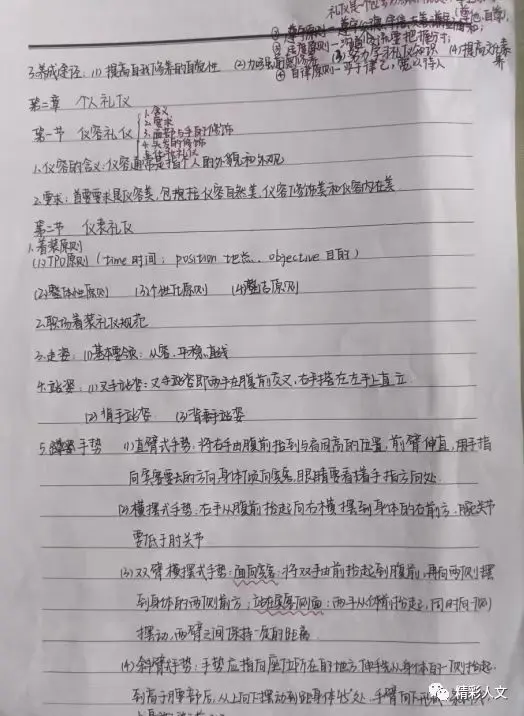 3.养成途径：(1) 提高自我修养的自觉性 (4)提高文化素养
④ 自律原则—严于律己，宽以待人
第二章 个人礼仪
第一节 仪容礼仪
1.含义
2.要求
4.头发的修饰
1.仪容的含义：仪容通常是指个人的外貌和外观
2.要求：首要要求是仪容美，包括仪容自然美，仪容修饰美和仪容内在美
第二节 仪表礼仪
1.着装原则
(1)TPO原则（time 时间； position 地点、objective 目的）
(2)整体性原则 (3)个性化原则 (4)整洁原则
2.职场着装礼仪规范
3.走姿：(1)基本要领：从容、平稳、直线
站姿：(1)叉手站姿：又手站姿即两手在腹前交叉，右手搭在左手上直立
(2)背手站姿 (3)背垂手站姿
5. 手势 (1)直臂式手势：将右手由腹前抬到与肩同高的位置，前臂伸直，用手指
向宾客要去的方向，身体倾向宾客，眼睛要看着手指方向处
(2)横摆式手势：右手从腹前抬起向右横摆到身体的右前方，腕关节
要低于肘关节
(3)双臂横摆式手势：面向宾客：将双手由前抬起到腹前，再向两侧摆
到身体的两侧前方；站在宾客侧面：两手从体前抬起，同时向一侧
摆动，两臂之间保持一定的距离
(4)斜臂式手势：手势应指向座位所在的地方，伸手先从身体的一侧抬起，
到高于腰部后，从上向下摆动到距身体
精彩人文